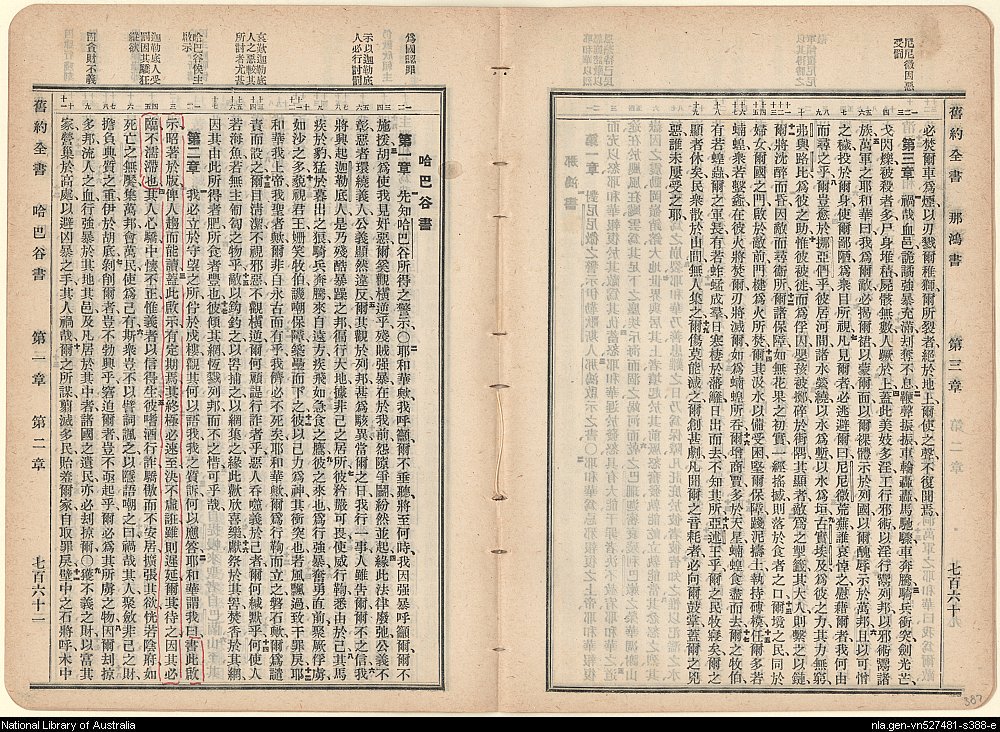 尼尼微因惡受罰
舊約全書
那鴻書
第三章
必焚爾車爲煙以刃戮爾稚獅爾所裂者絕於地上爾使之聲不復聞焉
第三章 禍哉血邑詭譎强暴充滿刦奪不息鞭聲振振車輪轟轟馬馳驟車奔騰騎兵衝突劍光芒
戈閃爍被殺者多尸身堆積屍骸無數人蹶於上蓋此美妓多淫工行邪術以淫行鬻列邦以邪術鬻諸
族萬軍之耶和華曰我爲爾敵必揭爾裙以蒙爾面以爾裸體示於列國以爾醜辱示於萬邦且以可憎
之穢投於爾身使爾鄙陋爲衆目所視凡見爾者必逃避爾曰尼尼微荒蕪誰哀悼之慰藉爾者我何由
而尋之乎爾豈愈於挪亞們乎彼居河間諸水縈繞以水爲塹以水爲垣古實埃及爲彼之力其力無窮
弗與路比爲彼之助惟彼被徙而爲俘囚嬰孩被擲碎於街隅其顯者敵爲之掣籤其大人則繫之以鏈
爾將沈醉而因敵而尋衛所爾諸保障如無花果之初實一經搖撼則落於食者之口爾境之民同於
婦女爾國之門啟於敵前門楗爲火所焚爾其汲水以備受困堅爾保障踐泥擣土執持磚模在爾多若
蝻蝗衆若螽在彼火將焚爾刃將滅爾如爲蝻蝗所吞爾增商賈多於天星蝻蝗食盡而去爾之牧伯
有若蝗蟲爾之軍長有若蚱蜢成羣日寒棲於藩籬日出而去不知其所亞述王乎爾之民牧寢矣爾之
顯者休矣民衆散於山間無人集之爾傷莫能滅爾創甚劇凡聞爾之音耗者必向爾鼓掌蓋爾之兇
惡誰未屢受之耶
舊約全書
哈巴谷書
第一章
第二章
七百六十二
爲國認罪
示以迦勒底人必行討罰
哀歎迦勒底人之惡較其所討者尤甚
哈巴谷俟主啟示
迦勒底人受罰因其驕狂縱欲
因貪財不義
哈巴谷書
第一章 先知哈巴谷所得之警示○耶和華歟我呼籲爾不垂聽將至何時我因强暴呼籲爾爾不
施援胡爲使我見奸惡爾奚觀橫逆乎殘賊强暴在於我前怨隙爭鬭紛然並起緣此法律廢弛公義不
彰惡者環繞義人公義顯然違反爾其觀於列邦甚爲駭異當爾之日我行一事人雖告爾爾不之信我
將興起迦勒底人是乃殘酷暴躁之邦徧行大地據非己之居所彼矜嚴可畏使威行鞫悉由於己其馬
疾於豹猛於暮出之狼騎兵奔騰來自遠方疾飛如急食之鷹彼之來也爲行强暴奮勇直前聚厥俘虜
如沙之多藐視君王姗笑牧伯譏嘲保障築壘而下之彼以己力爲神其衝突也若風飄過致干罪戾耶
和華我上帝我聖者歟爾非自永古而有乎我儕必不死矣耶和華歟爾爲行鞫而立之磐石歟爾爲譴
責而設之爾目清潔不視邪惡不觀橫逆爾何顧詭行詐者乎惡人吞噬義於己者爾何緘默乎何使人
若海魚若無主匍匐之物乎敵以鈎釣之以罟捕之以網集之緣此歡欣喜樂獻祭於其罟焚香於其網
因其由此所得者肥所食者豐也彼傾其網恆戮列邦而不之惜可乎哉
第二章 我必立於守望之所佇於戍樓觀其何以語我我之質訴何以應答耶和華謂我曰書此啟
示昭著於版俾人趨而能讀蓋此啟示有定期焉其終極必速至決不虛誑雖則遲延爾其待之因其必
臨不濡滯也其人心驕中懷不正惟義者以信得生彼嗜酒行詐驕傲而不安居擴張其欲恍若陰府如
死亡之無饜集萬邦會萬民使爲己有斯衆豈不以譬詞諷之以隱語嘲之曰禍哉其人聚斂非己之財
擔負典質之重伊於胡底剝創爾者豈不勃興乎窘迫爾者豈不亟起乎爾必爲其所虜之物因爾刦掠
多邦流人之血行强暴於其地其邑及凡居於其中者諸國之遺民亦必刦掠爾○獲不義之財以富其
家營巢於高處以避凶暴之手其人禍哉爾之所謀翦滅多民貽羞爾家自取罪戾壁中之石將呼木中
National Library of Australia
nla.gen-vn527481-s388-e